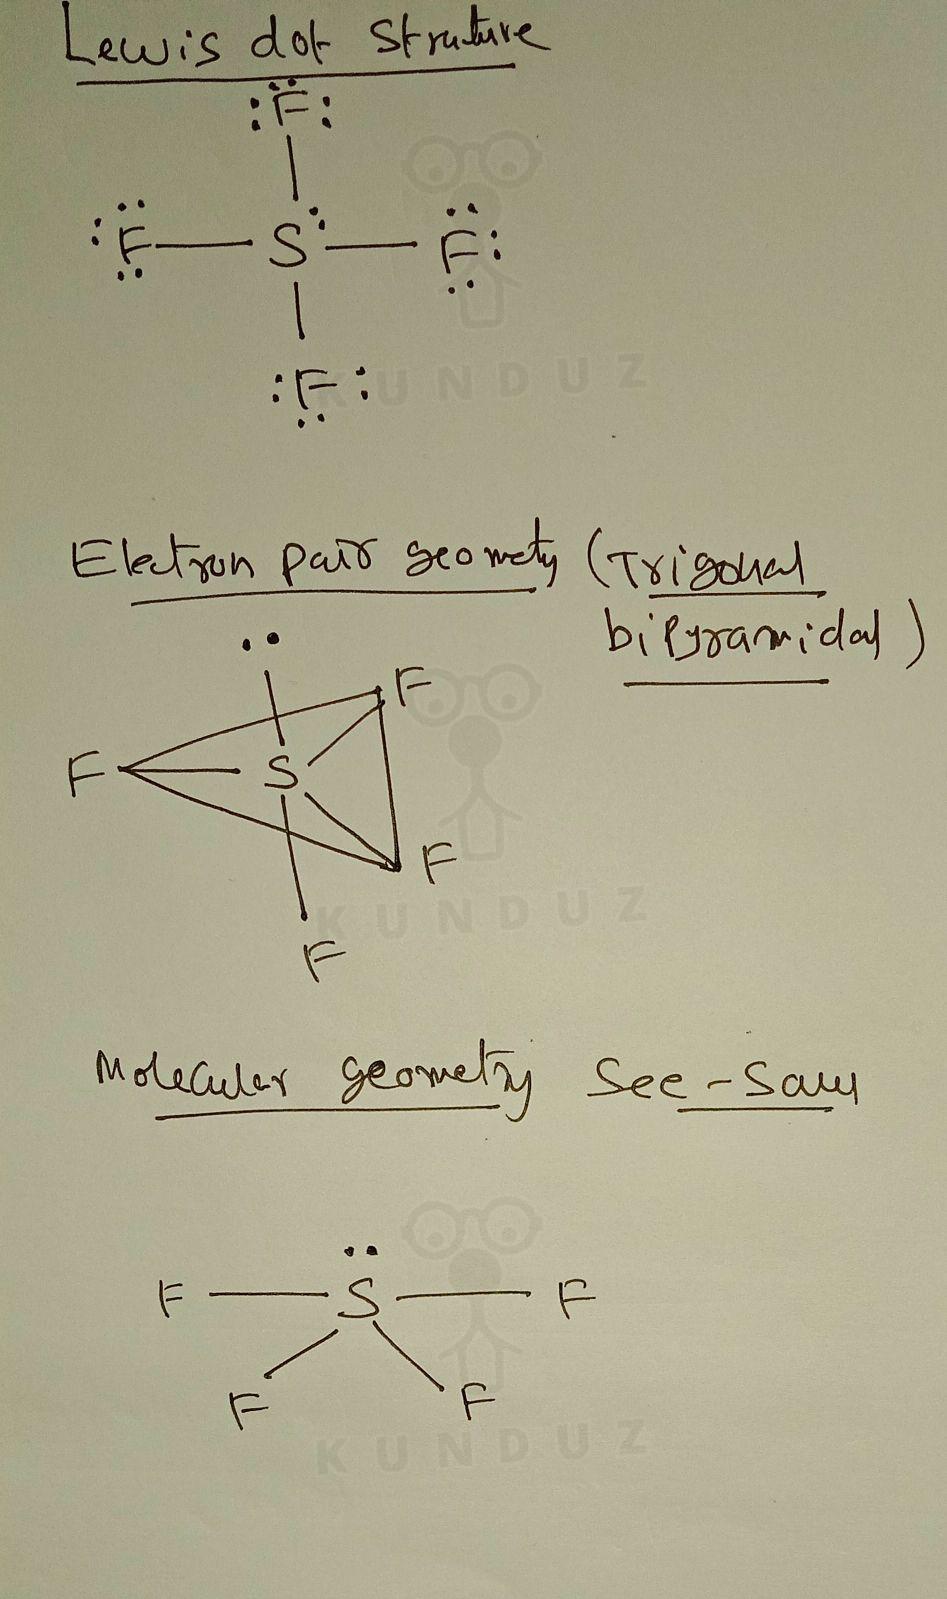 Lewis dot Structure
F
F S F
F
KUNDUZ
Electron pair geometry (Trigonal
bipyramidal)
F
F S
F
KUNDUZ
F
Molecular geometry See-Saw
F S F
F F
KUNDUZ